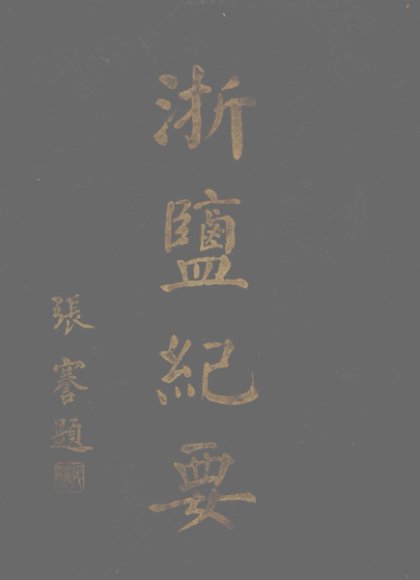 浙鹽紀要
張謇題